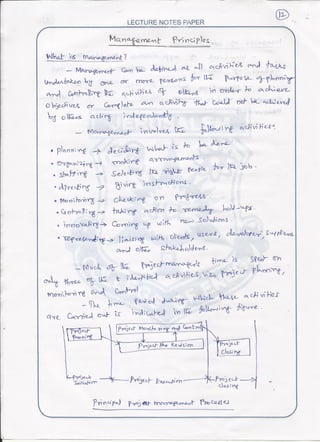 12
LECTURE NOTES PAPER
Management Principles
What is management?
- Management can be defined as all activities and tasks
undertaken by one or more persons for the purpose of planning
and controlling the activities of others in order to achieve
objectives or complete an activity that could not be achieved
by others acting independently
- Management involves the following activities:
• planning → deciding what is to be done.
• Organizing → making arrangements
• staffing → Selecting the right people for the job.
• directing → giving instructions.
• Monitoring → checking on progress
• Controlling → taking action to remedy hold-ups.
• innovating → Coming up with new solutions
• representing → liaising with clients, users, developer, suppliers
and other stakeholders.
- Much of the project manager's time is spent on
only three of the 8 identified activities, viz, Project Planning,
monitoring and Control
- The time period during which these activities
are Carried out is indicated in the following figure
Project Planning
Project Monitoring and Control
Project Re Revision
Project Closing
Project Initiation
Project Execution
Project Closing
Principal Project management Processes